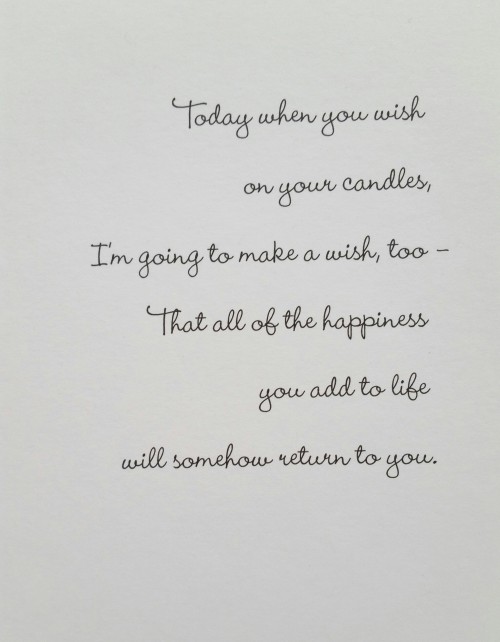 Today when you wish
on your candles,
I'm going to make a wish, too –
That all of the happiness
you add to life
will somehow return to you.